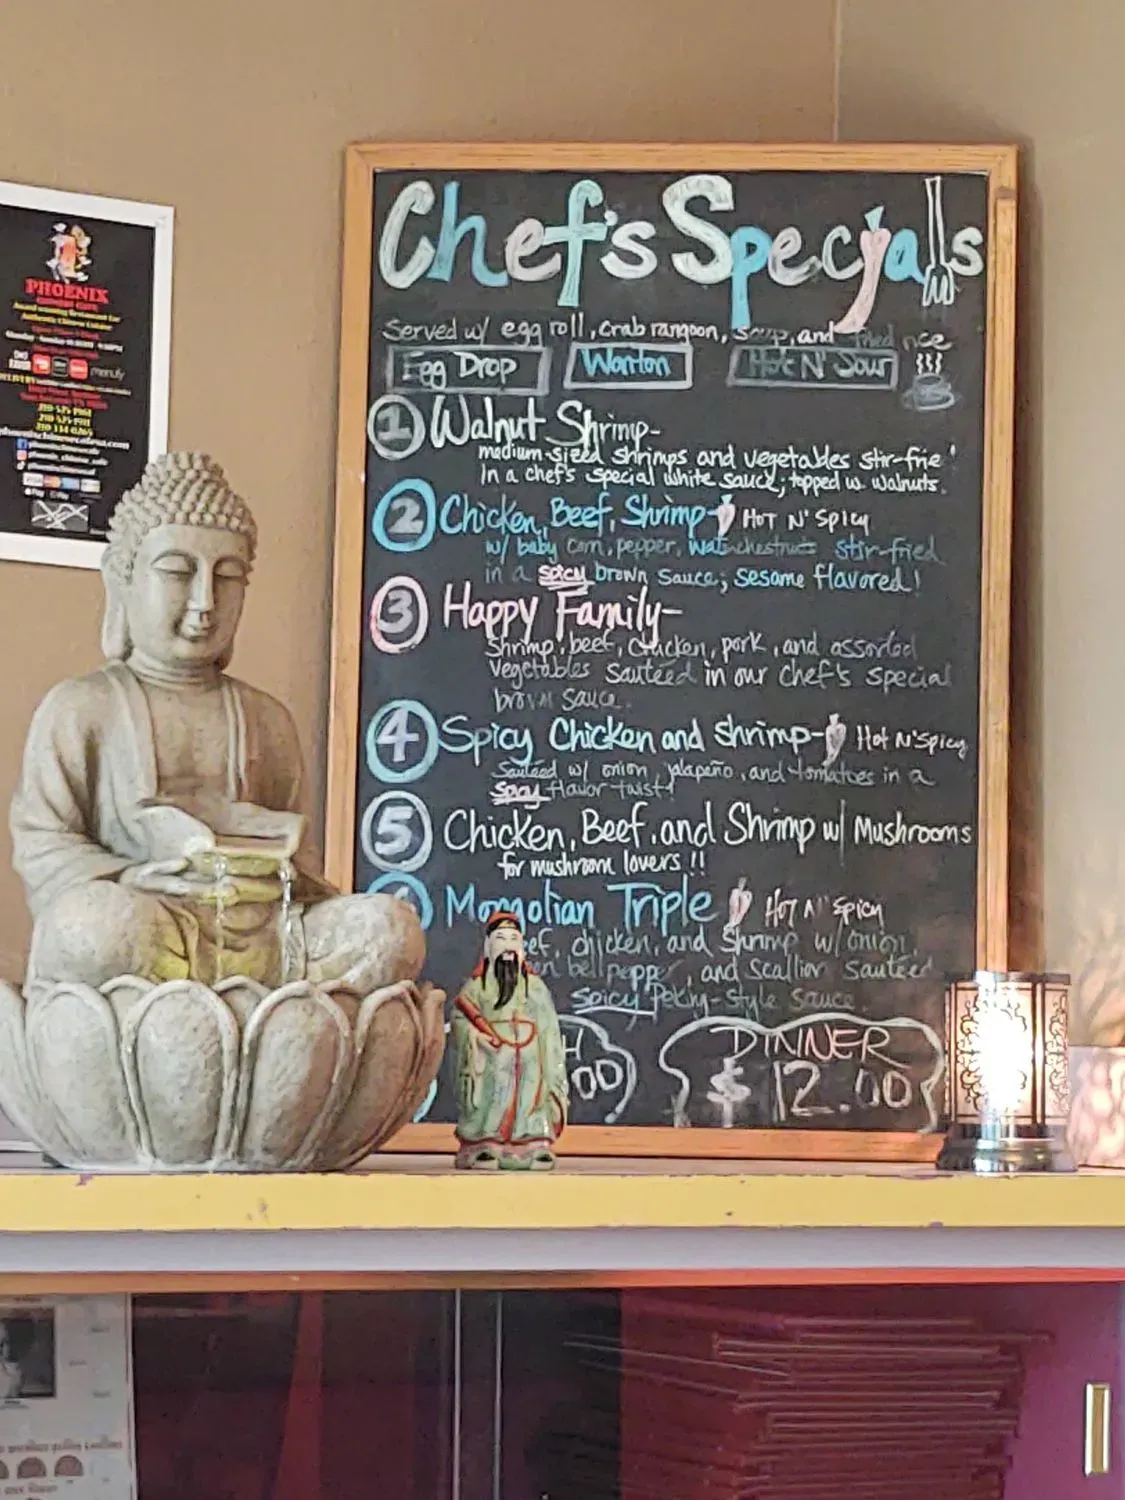 PHOENIX
Award winning Restaurant for
Authentic Chinese Cuisine
Chef's Specials
Served w/ egg roll, crab rangoon, soup, and fried rice
Egg Drop
Wonton
Hot N' Sour
1 Walnut Shrimp-
medium-sized shrimps and vegetables stir-frie
In a chef's special white sauce; topped w. walnuts.
2 Chicken, Beef, Shrimp- HOT N' Spicy
w/ baby corn, pepper, water chestnuts stir-fried
in a spicy brown sauce; sesame flavored!
3 Happy Family-
Shrimp, beef, chicken, pork, and assorted
vegetables sautéed in our chef's special
brown sauce.
4 Spicy Chicken and shrimp- Hot N' Spicy
Sautéed w/ onion, jalapeño, and tomatoes in a
spicy flavor twist!
5 Chicken, Beef, and Shrimp w/ Mushrooms
for mushroom lovers!!
Mongolian Triple HOT N' Spicy
eef, chicken, and Shrimp w/ onion,
en bell pepper, and scallion sautéed
spicy Peking-style sauce.
H
00
DINNER
$12.00